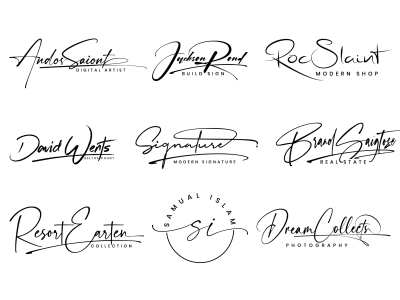 Andos Saiont
DIGITAL ARTIST
Jackson Rond
BUILD SIGN
RocSlaint
MODERN SHOP
David Wents
Signature
MODERN SIGNATURE
Brand Saigtose
REAL STATE
Resort Earten
COLLECTION
SAMUAL ISLAM
si
DreamCollects
PHOTOGRAPHY